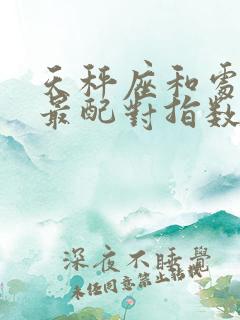 天秤座和處
最配對指数
深夜不睡覺
未任同意禁止轉機